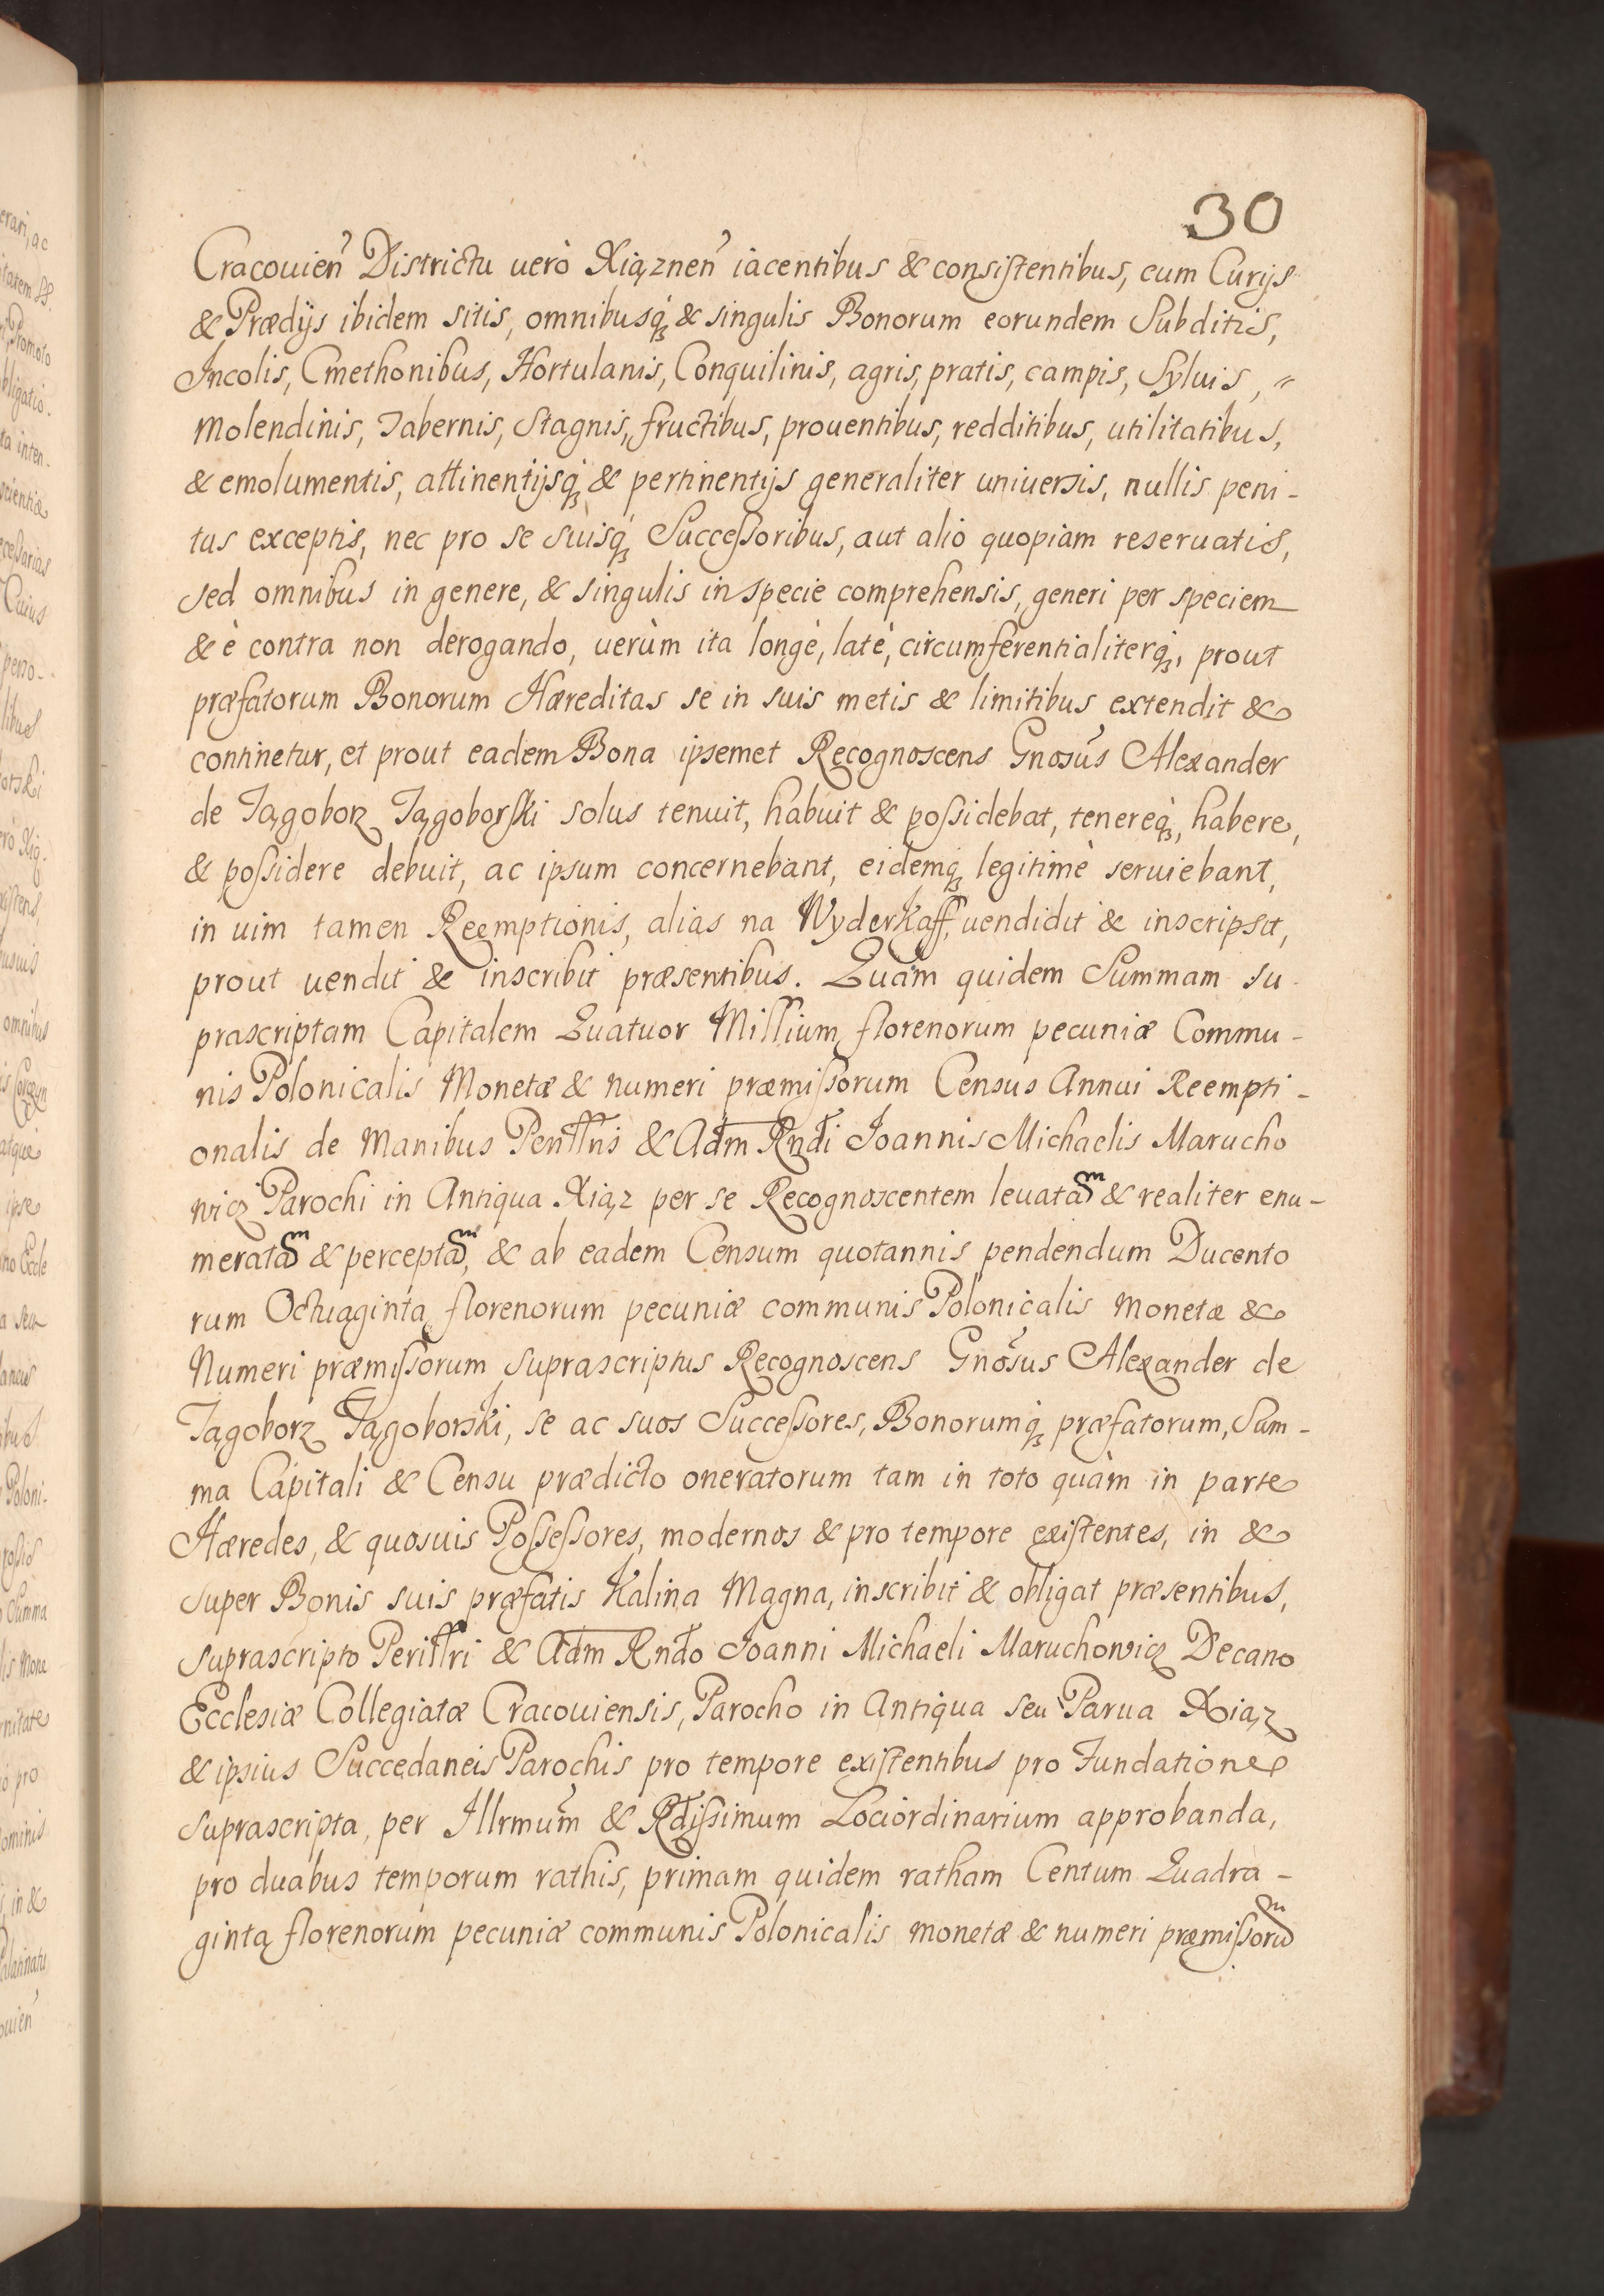 30
Cracouien̄ Districtu uerò Xiąznen̄ iacentibus & consistentibus, cum Curijs
& Prædijs ibidem sitis, omnibusq́ꝫ & singulis Bonorum eorundem Subditis,
Incolis, Cmethonibus, Hortulanis, Conquilinis, agris, pratis, campis, Syluis, "
Molendinis, Tabernis, Stagnis, fructibus, prouentibus, redditibus, utilitatibus,
& emolumentis, attinentijsq́ꝫ & pertinentijs generaliter uniuersis, nullis peni-
tus exceptis, nec pro se suisq́ꝫ Successoribus, aut alio quopiam reseruatis,
sed omnibus in genere, & singulis in specie comprehensis, generi per speciem
& è contra non derogando, uerùm ita longè, latè, circumferentialiterq́ꝫ, prout
præfatorum Bonorum Hæreditas se in suis metis & limitibus extendit &
continetur, et prout eadem Bona ipsemet Recognoscens Gnosūs Alexander
de Tągoborz Tągoborski solus tenuit, habuit & possidebat, tenereq́ꝫ, habere,
& possidere debuit, ac ipsum concernebant, eidemq́ꝫ legitimè seruiebant,
in uim tamen Reemptionis, alias na Wyderkaff, uendidit & inscripsit,
prout uendit & inscribit præsentibus. Quam quidem Summam su-
prascriptam Capitalem Quatuor Millium florenorum pecuniæ Commu-
nis Polonicalis Monetæ & numeri præmissorum Census Annui Reempti-
onalis de Manibus Perillris & Adm Rndi Ioannis Michaelis Marucho
wicz Parochi in Antiqua Xiąz per se Recognoscentem leuatam & realiter enu-
meratam & perceptam, & ab eadem Censum quotannis pendendum Ducento
rum Octuaginta florenorum pecuniæ communis Polonicalis Monetæ &
Numeri præmissorum suprascriptus Recognoscens Gnōsus Alexander de
Tągoborz Tągoborski, se ac suos Successores, Bonorumq́ꝫ præfatorum, Sum-
ma Capitali & Censu prædicto oneratorum tam in toto quàm in parte
Hæredes, & quosuis Possessores, modernos & pro tempore existentes, in &
super Bonis suis præfatis Kalina Magna, inscribit & obligat præsentibus,
suprascripto Perillri & Adm Rndo Ioanni Michaeli Maruchowicz Decano
Ecclesiæ Collegiatæ Cracouiensis, Parocho in Antiqua seu Parua Xiąz
& ipsius Succedaneis Parochis pro tempore existentibus pro Fundatione
suprascripta, per Illrmum & Rdissimum Lociordinarium approbanda,
pro duabus temporum rathis, primam quidem ratham Centum Quadra-
ginta florenorum pecuniæ communis Polonicalis monetæ & numeri præmissorum